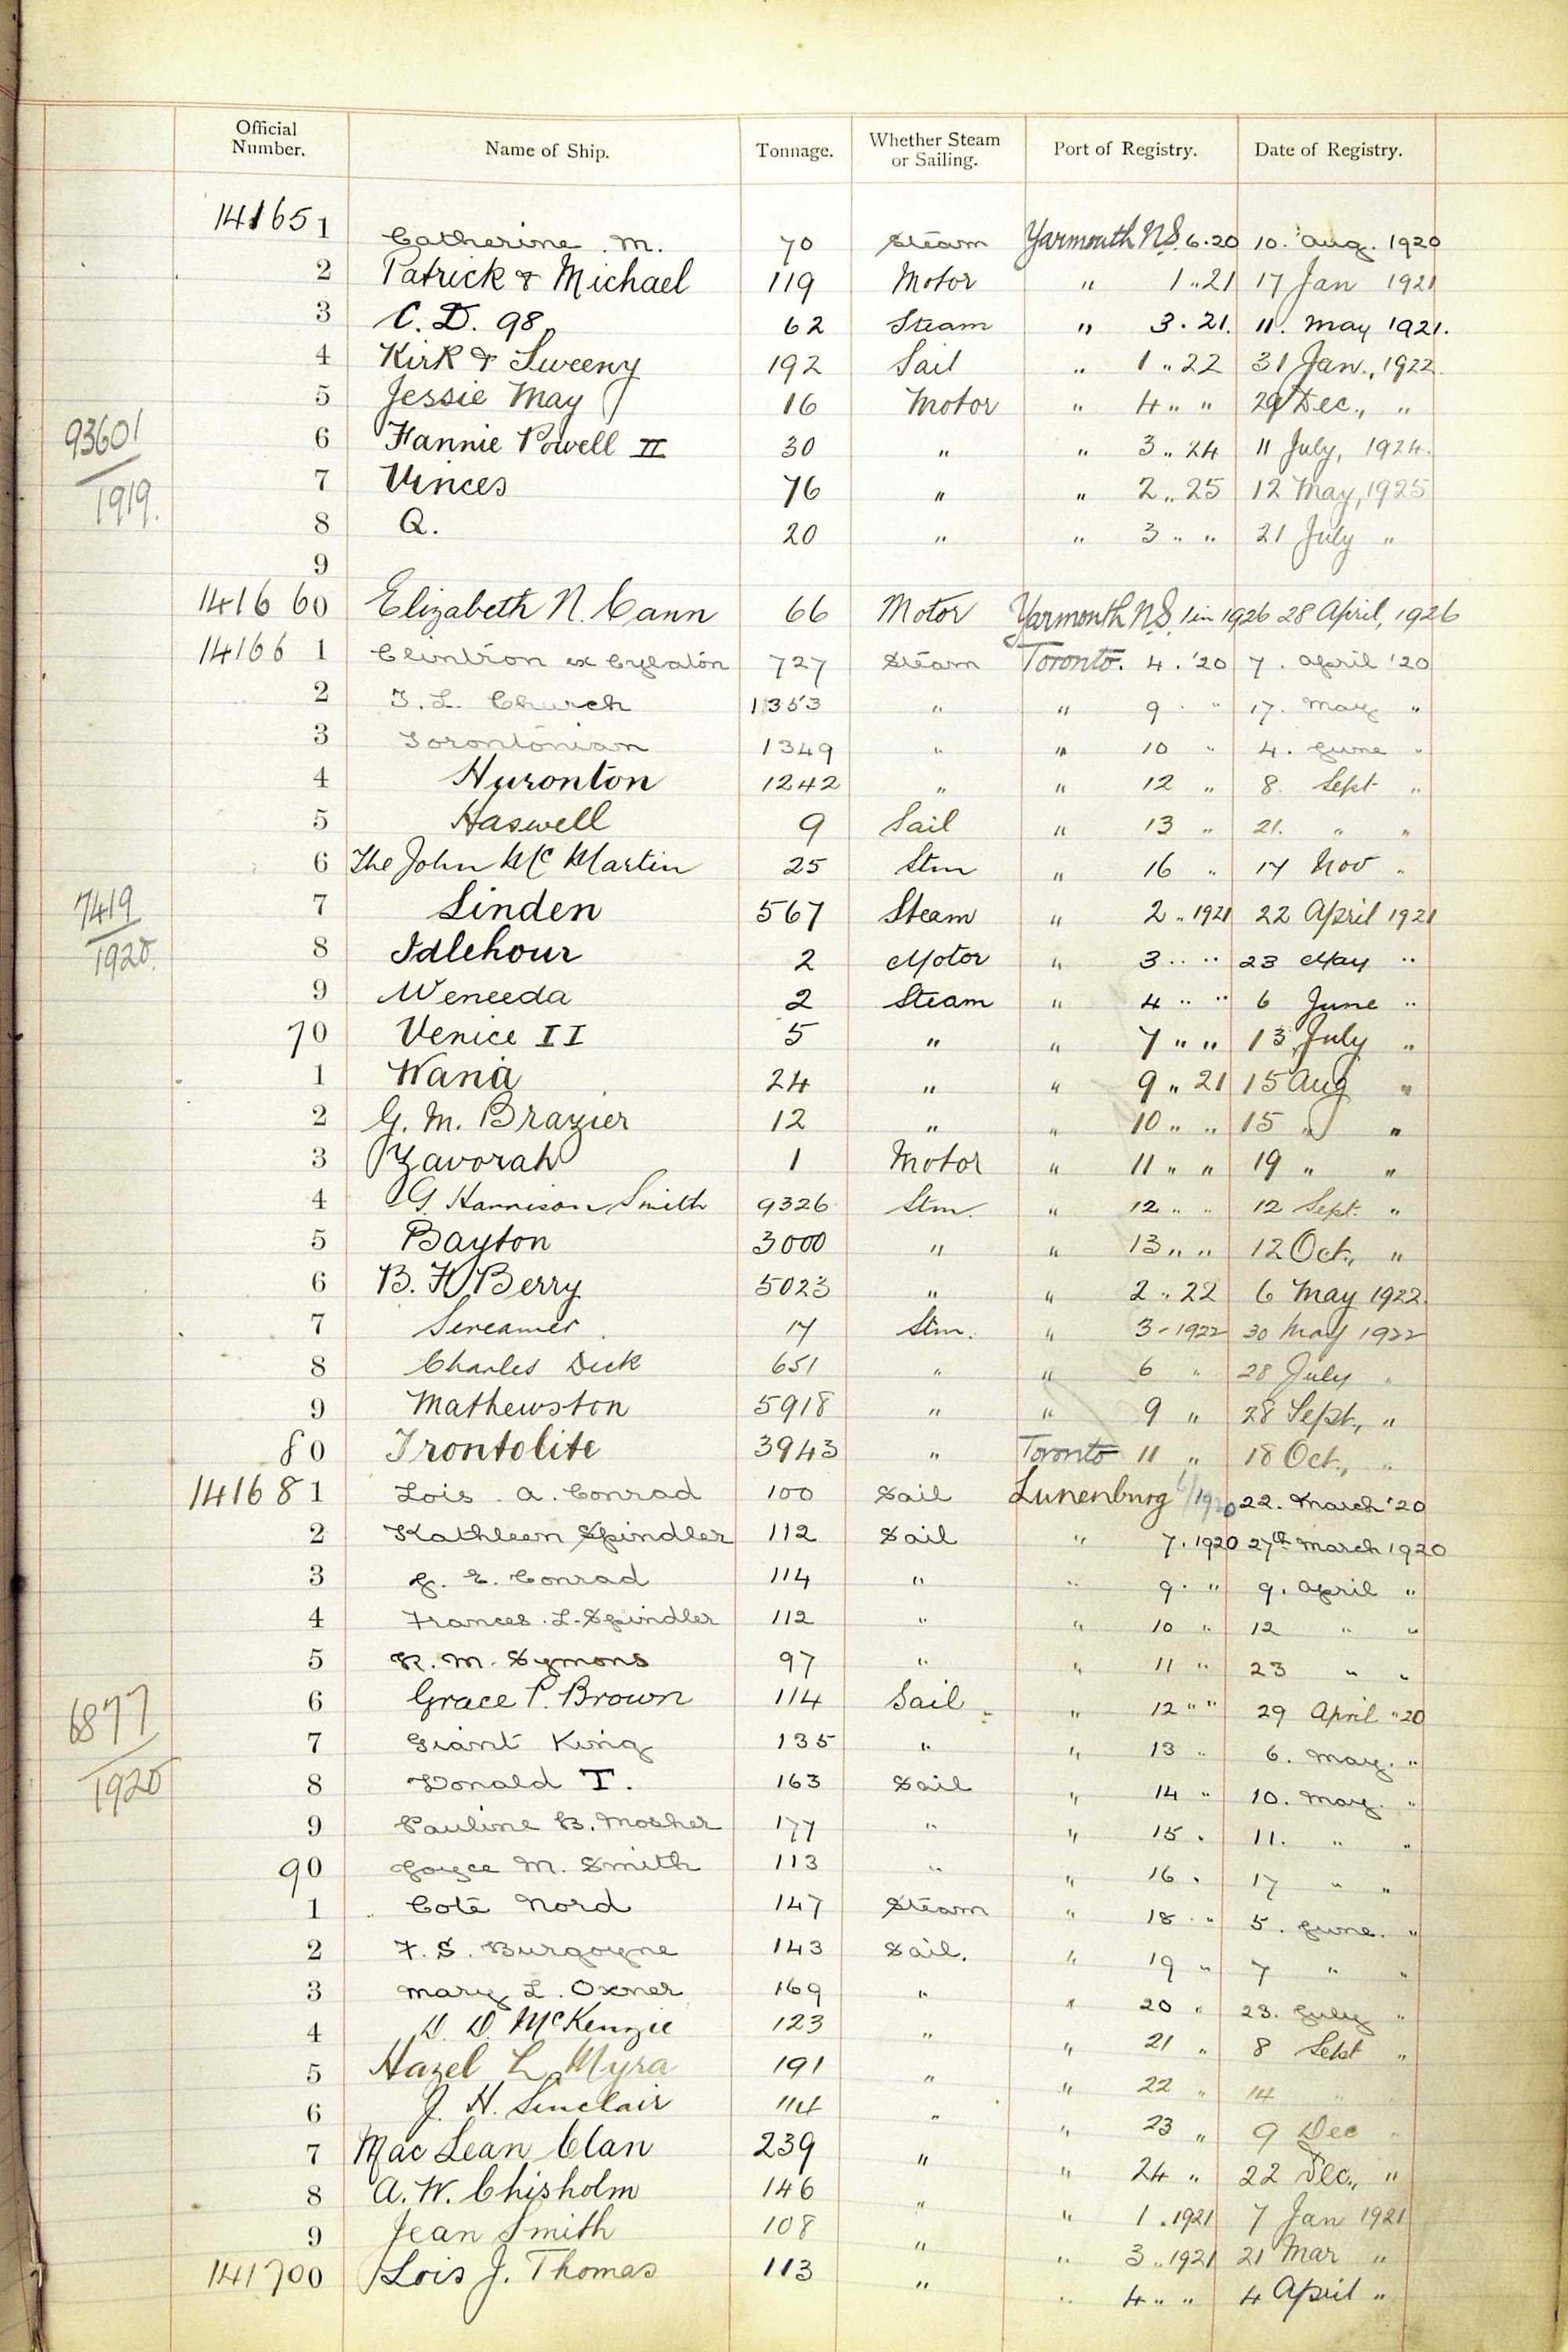 Official Number. Name of Ship. Tonnage. Whether Steam or Sailing. Port of Registry. Date of Registry.
141651 Catherine . M. 70 Steam Yarmouth N.S. 6.20 10. Aug. 1920
2 Patrick & Michael 119 Motor " 1 .. 21 17 Jan 1921
3 C. D. 98 62 Steam " 3 . 21. 11. May 1921.
4 Kirk & Sweeny 192 Sail " 1 .. 22 31 Jan., 1922.
5 Jessie May 16 Motor " 4 .. " 29 Dec., "
93601
6 Fannie Powell II 30 " " 3 .. 24 11 July, 1924.
7 Vinces 76 " " 2 .. 25 12 May, 1925
1919.
8 Q. 20 " " 3 .. " 21 July "
9
141660 Elizabeth N. Cann 66 Motor Yarmouth N.S. 1 in 1926 28 April, 1926
141661 Clintron ex Cylaton 727 Steam Toronto. 4 . '20 7 . April '20
2 T. L. Church 1353 " " 9 . " 17. May "
3 Torontonian 1349 " " 10 " 4. June "
4 Huronton 1242 " " 12 " 8. Sept "
5 Haswell 9 Sail " 13 " 21. " "
6 The John McMartin 25 Stm " 16 " 17 Nov "
7419
7 Linden 567 Steam " 2 .. 1921 22 April 1921
8 Idlehour 2 Motor " 3 .. " 23 May "
1920.
9 Weneeda 2 Steam " 4 .. " 6 June "
70 Venice II 5 " " 7 " " 13 July "
1 Wana 24 " " 9 " 21 15 Aug "
2 G. M. Brazier 12 " " 10 " " 15 " "
3 Zavorah 1 Motor " 11 " " 19 " "
4 G. Harrison Smith 9326 Stm. " 12 " " 12 Sept. "
5 Bayton 3000 " " 13 " " 12 Oct., "
6 B. F. Berry 5023 " " 2 .. 22 6 May 1922.
7 Screamer 17 Stm. " 3 - 1922 30 May 1922
8 Charles Dick 651 " " 6 " 28 July "
9 Mathewston 5918 " " 9 " 28 Sept., "
80 Irontolite 3943 " Toronto 11 " 18 Oct., "
141681 Lois . A. Conrad 100 Sail Lunenburg /1920 22. March '20
2 Kathleen Spindler 112 Sail " 7 . 1920 27th March 1920
3 G. E. Conrad 114 " " 9 . " 9. April "
4 Frances . L. Spindler 112 " " 10 " 12 " "
5 R. M. Symons 97 " " 11 " 23 " "
6 Grace P. Brown 114 Sail " 12 " " 29 April " 20
6877
7 Giant King 135 " " 13 " 6. May. "
8 Donald T. 163 Sail " 14 " 10. May. "
1920
9 Pauline B. Mosher 177 " " 15 " 11. " "
90 Joyce M. Smith 113 " " 16 " 17 " "
1 Cote Nord 147 Steam " 18 " 5. June. "
2 F. S. Burgoyne 143 Sail. " 19 " 7 " "
3 Mary L. Oxner 169 " " 20 " 23. July "
4 D. D. McKenzie 123 " " 21 " 8 Sept "
5 Hazel L. Myra 191 " " 22 " 14 " "
6 J. H. Sinclair 114 " " 23 " 9 Dec "
7 Mac Lean Clan 239 " " 24 " 22 Dec., "
8 A. W. Chisholm 146 " " 1 . 1921 7 Jan 1921
9 Jean Smith 108 " " 3 .. 1921 21 Mar "
141700 Lois J. Thomas 113 " " 4 .. " 4 April "